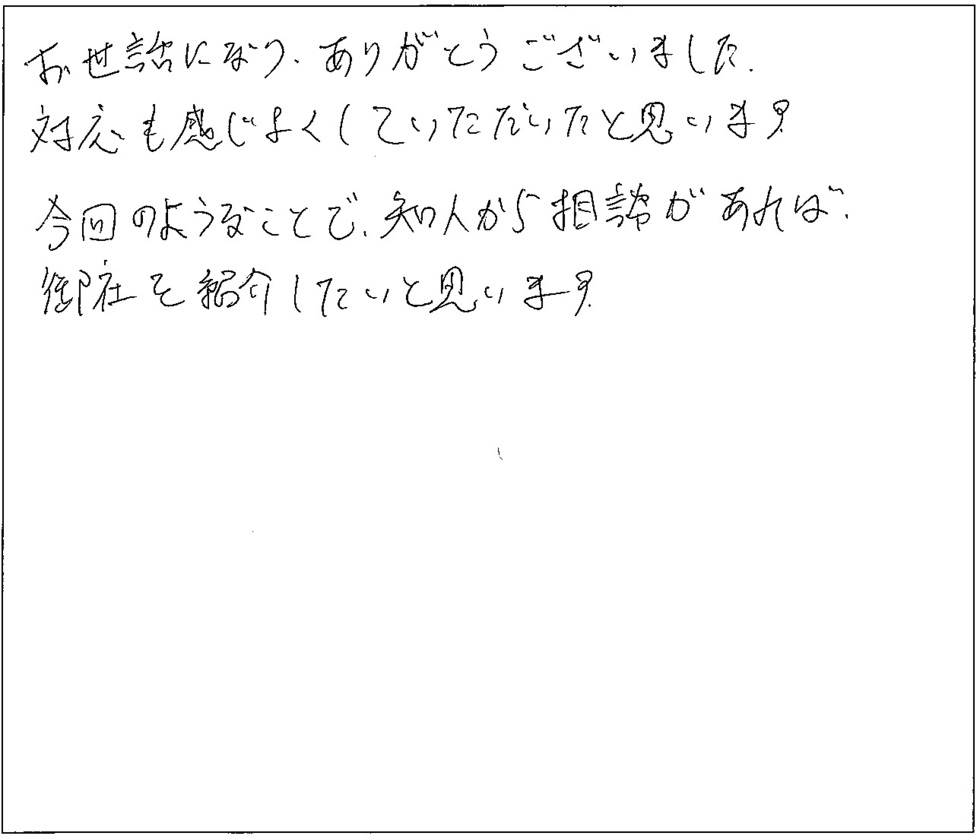 お世話になり、ありがとうございました.
対応も感じよくしていただいたと思います
今回のようなことで、知人から相談があれば、
御社を紹介したいと思います